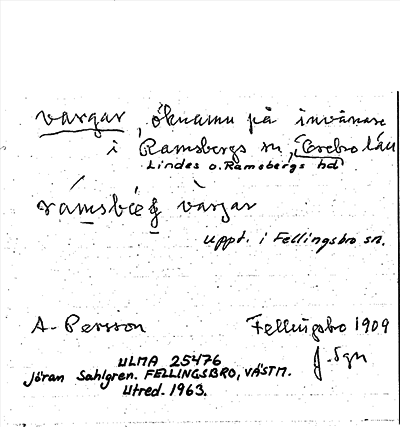 vargar, öknamn på invånare
i Ramsbergs sn, Örebro län
Lindes o. Ramsbergs hd
rámsbærg vàrgar
uppt. i Fellingsbro sn.
A. Persson Fellingsbro 1909
J. Sgn
ULMA 25476
Jöran Sahlgren. FELLINGSBRO, VÄSTM.
Utred. 1963.